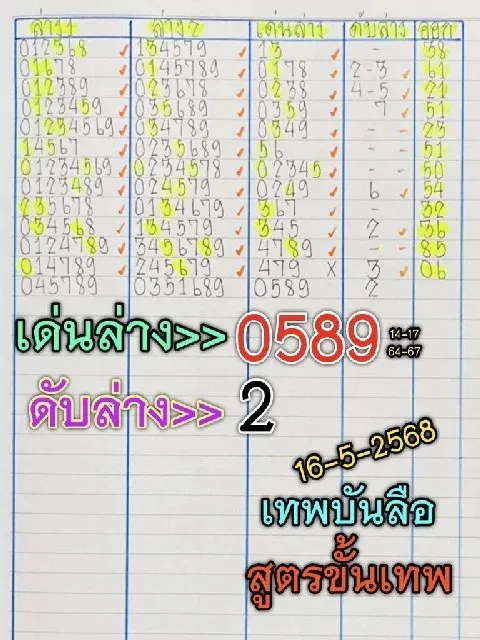 ล่าง1 ล่าง2 เด่นล่าง ดับล่าง ออก
012368 ✓ 134579 ✓ 13 ✓ - 38
01678 ✓ 0145789 ✓ 0178 ✓ 2-3 ✓ 61
012389 ✓ 023678 ✓ 0238 ✓ 4-5 ✓ 21
0123459 ✓ 035689 ✓ 0359 ✓ 7 ✓ 51
01234569 ✓ 034789 ✓ 0349 ✓ - - 23
14567 ✓ 0235689 ✓ 56 ✓ - - 51
01234569 ✓ 0234578 ✓ 02345 ✓ - - 50
0123489 ✓ 024579 ✓ 0249 ✓ 6 ✓ 54
235678 ✓ 0134679 ✓ 367 ✓ - - 32
034568 ✓ 134579 ✓ 345 ✓ 2 ✓ 36
0124789 ✓ 3456789 ✓ 4789 ✓ - - 85
014789 ✓ 245679 ✓ 479 x 3 ✓ 06
045789 0351689 0589 2
เด่นล่าง>> 0589 14-17
64-67
ดับล่าง>> 2
16-5-2568
เทพบันลือ
สูตรขั้นเทพ